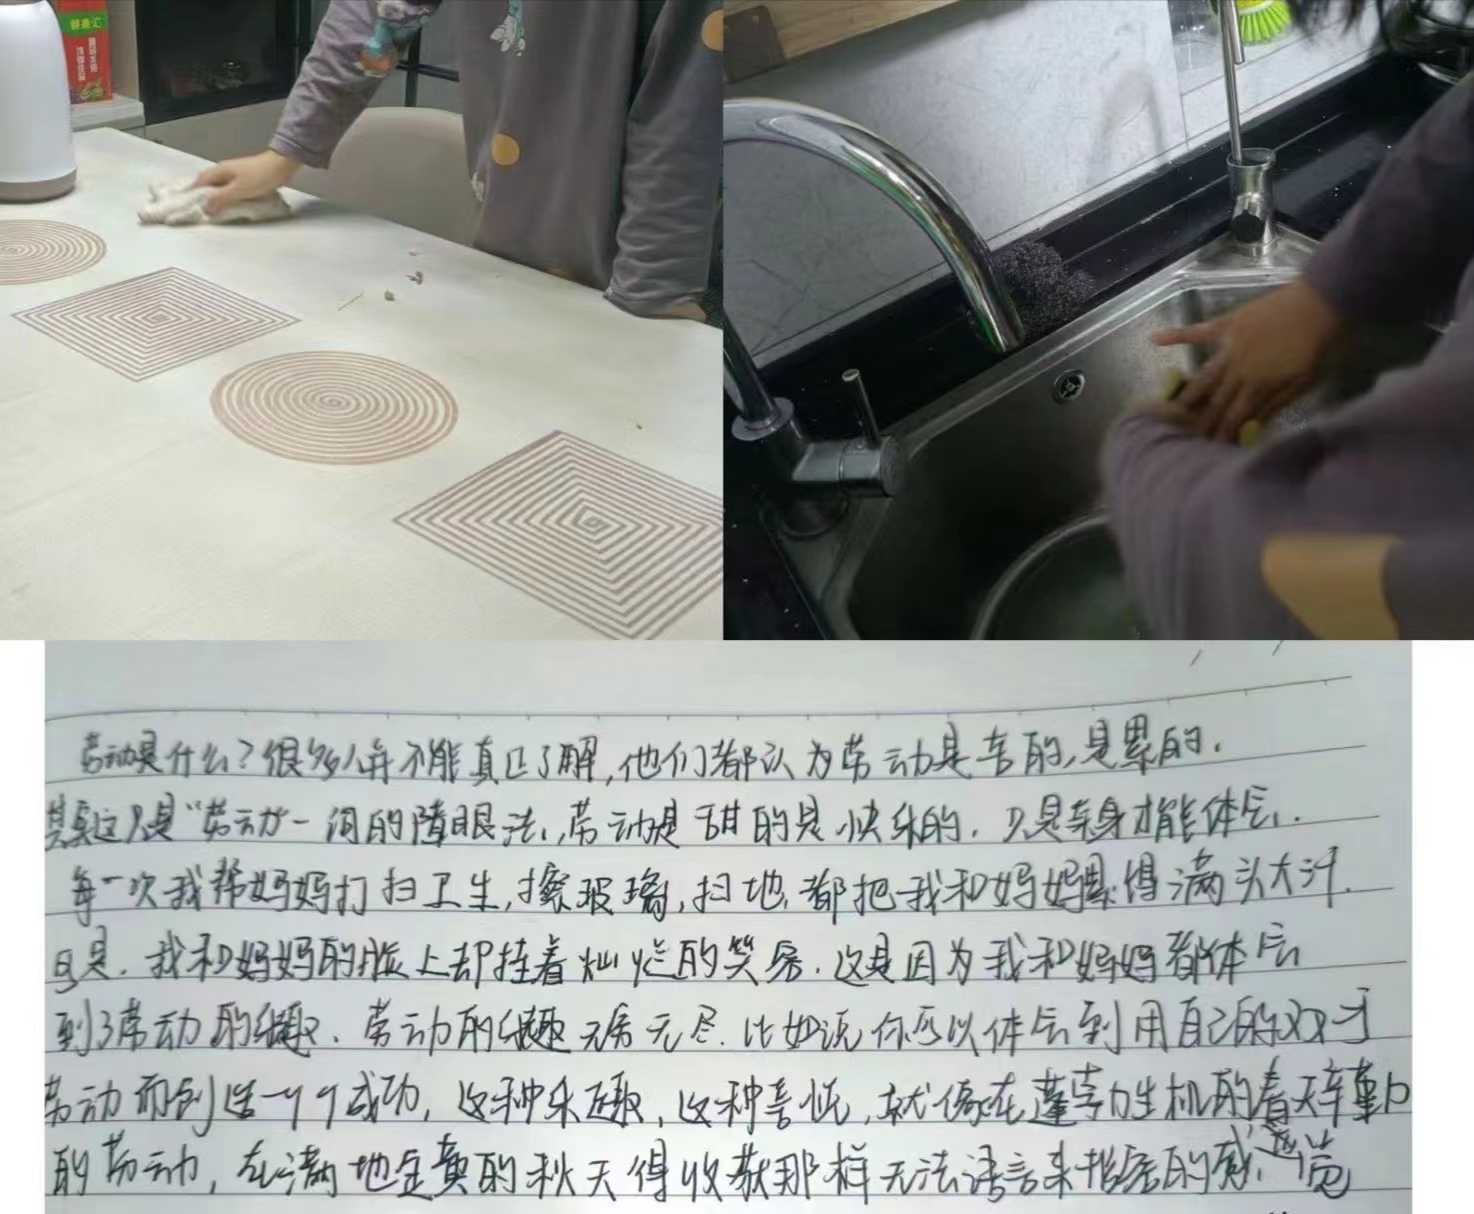 健康汇
劳动是什么?很多人并不能真正了解,他们都认为劳动是苦的,是累的.
其实这只是"劳动"一词的障眼法,劳动是甜的是快乐的.只是亲身才能体会.
每一次我帮妈妈打扫卫生,擦玻璃,扫地,都把我和妈妈累得满头大汗.
可是.我和妈妈的脸上却挂着灿烂的笑容.这是因为我和妈妈都体会
到了劳动的乐趣.劳动的乐趣无穷无尽.比如说你可以体会到用自己的双手
劳动而创造一个个成功,这种乐趣,这种喜悦,就像在蓬勃生机的春天辛勤
的劳动,在满地金黄的秋天得收获那样无法语言来形容的感觉